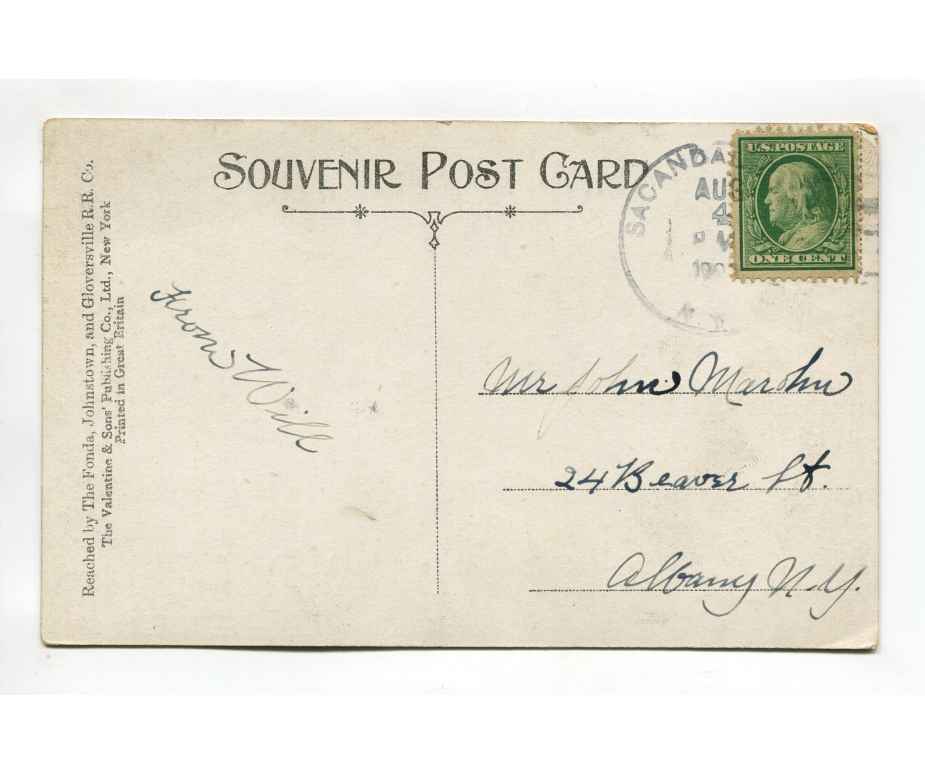 Reached by The Fonda, Johnstown, and Gloversville R.R. Co.
The Valentine & Sons' Publishing Co., Ltd., New York
Printed in Great Britain
SOUVENIR POST CARD
SACANDA
AUG
4
190
N.Y.
U.S. POSTAGE
ONE CENT
From Will
Mr John Marohn
24 Beaver St.
Albany N.Y.